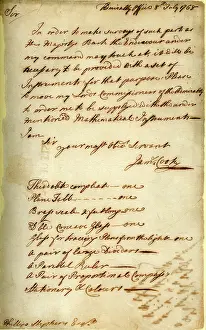 Sir
Admiralty Office 8 July 1768
In order to make surveys of such parts as
His Majestys Bark the Endeavour under
my command may touch at it will be
necessary to be provided with a set of
Instruments for that purpose. Please
to move my Lords Commissioners of the Admiralty
to order me to be supplied with the under
mentioned Mathematical Instruments
I am
Sir
your most hble Servant
Jams Cook
Theodolite compleat — one
Plane Table — one
Brass scale 2 feet long one
Dble Concave Glass — one
Glass for traceing Plans from the light one
A pair of large Dividers —
A Parallel Ruler —
A Pair of Proportional Compass
Stationery & Colours —
Phillips Stephens Esqr.